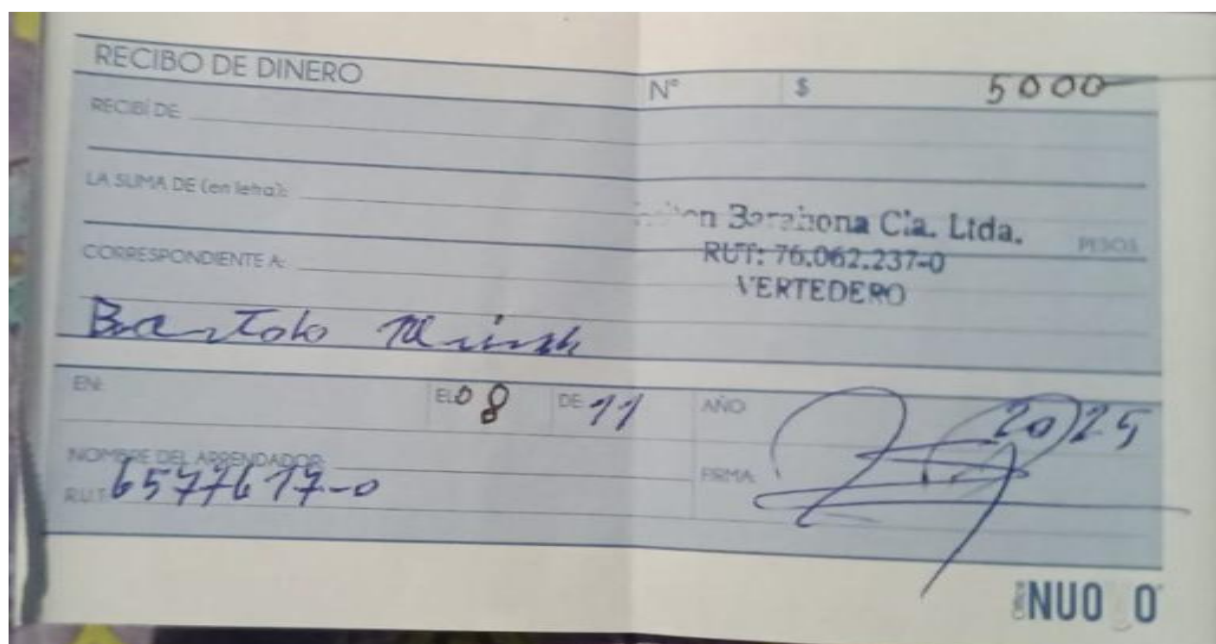 RECIBO DE DINERO N° $ 5000
RECIBÍ DE:
LA SUMA DE (en letra):
Barahona Cia. Ltda. PESOS
RUT: 76.062.237-0
CORRESPONDIENTE A:
VERTEDERO
Bartolo
EN: EL 08 DE 11 AÑO 2025
NOMBRE DEL ARRENDADOR:
R.U.T. 6577617-0 FIRMA: